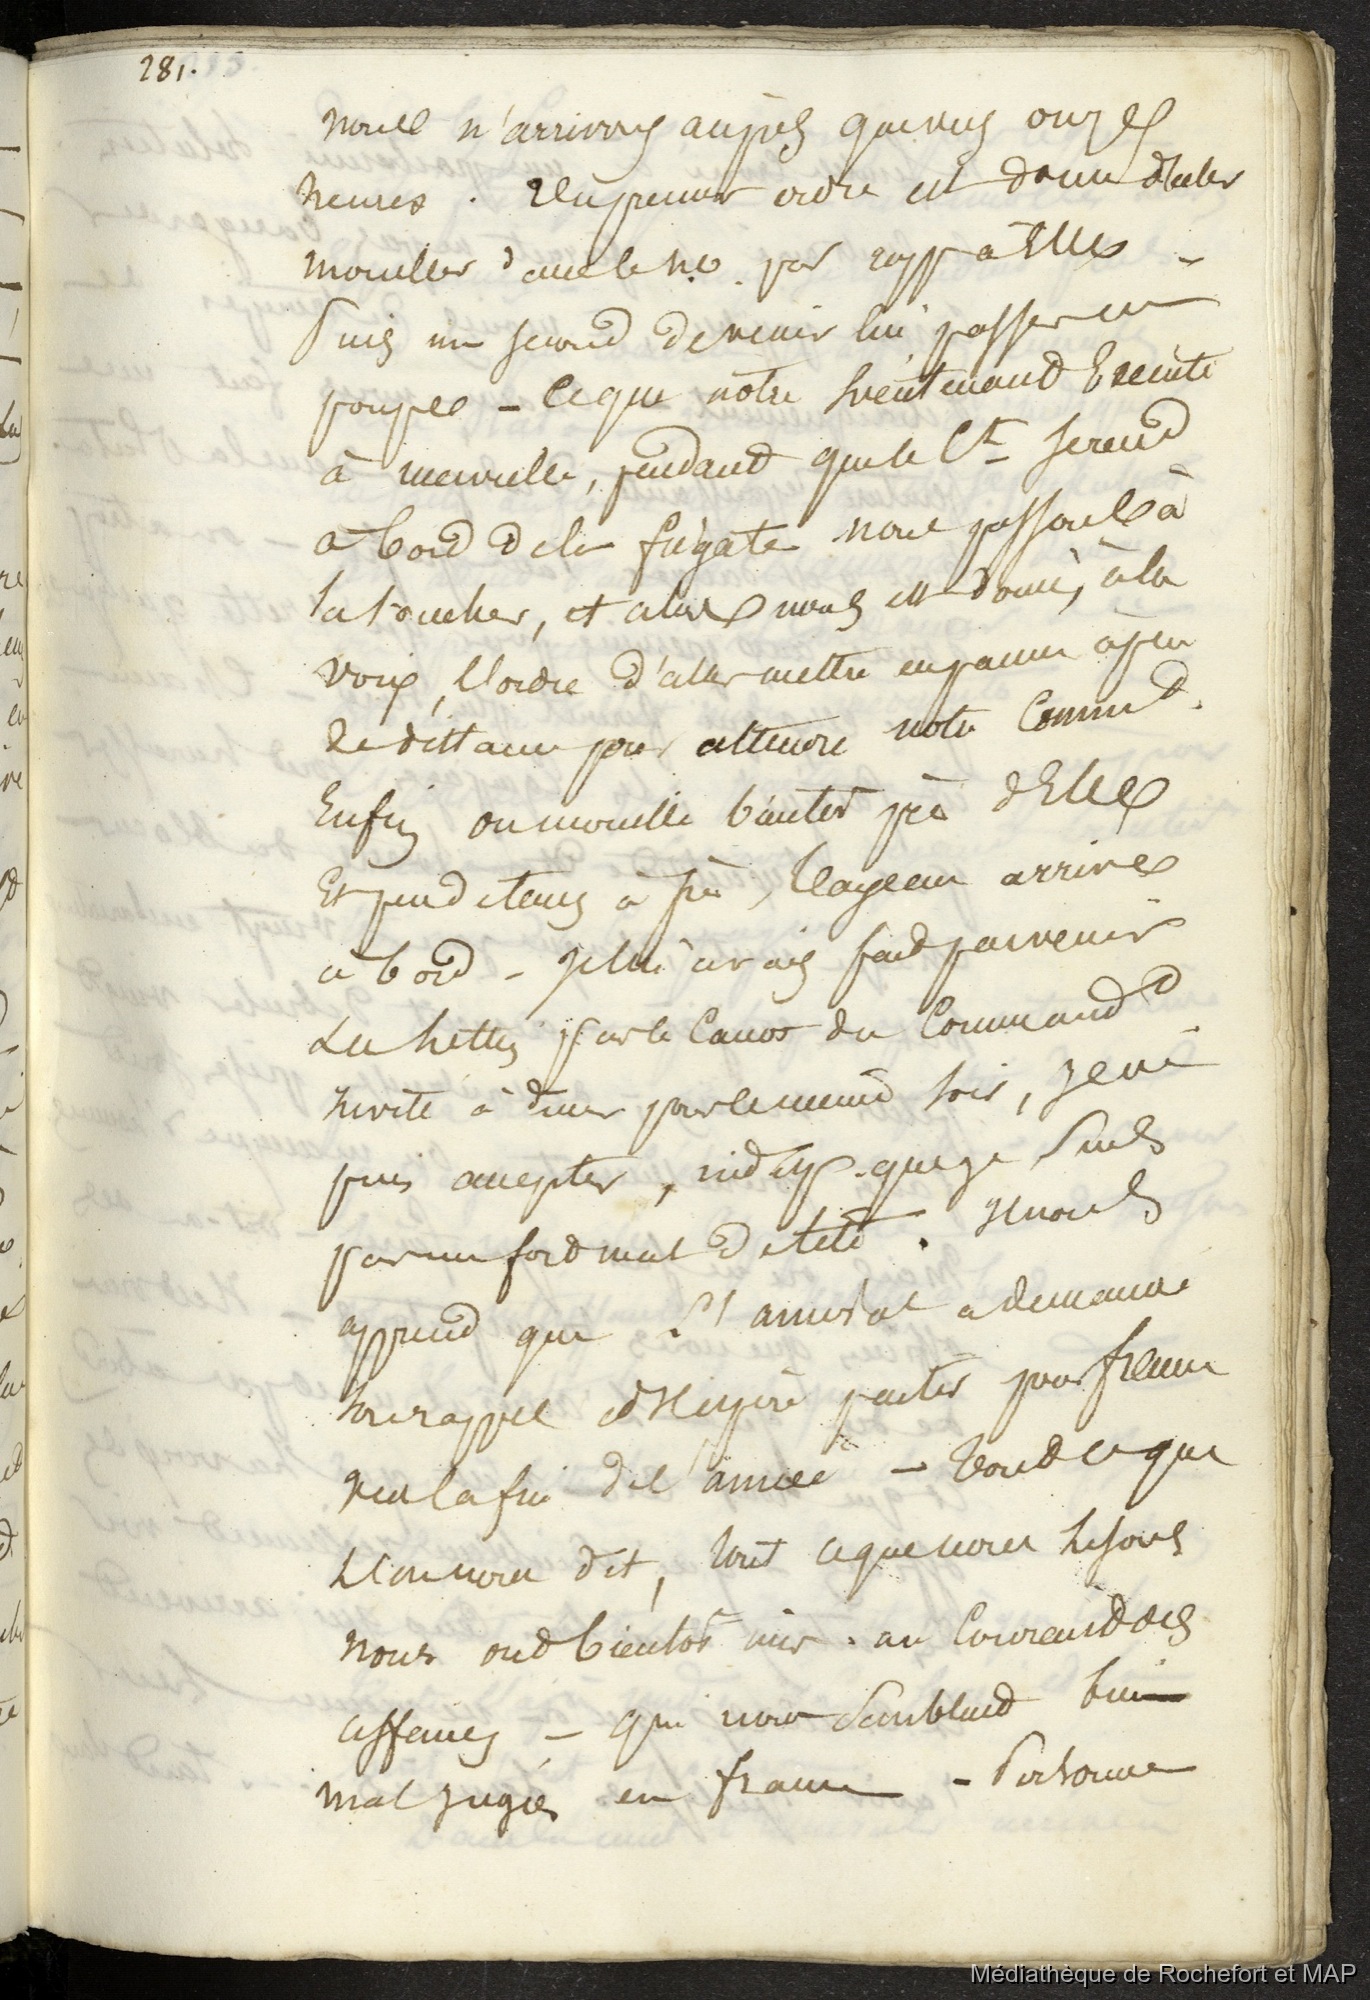 281.
nous n'arrivons auprès que vers onze
heures. Un premier ordre est donné d'aller
mouiller dans le N.O. par rapp à Elle -
Puis un second de venir lui passer en
poupe - ce que notre lieutenant Execute
à merveille, pendant que le Ct se rend
à bord de la frégate nous passons à
la toucher, et alors nous est donné, à la
voix, l'ordre d'aller mettre en panne à peu
de distance pour attendre notre Command.
Enfin on mouille bientôt près d'Elle
Et peu de tems après, arrive
à bord - je lui avais fait parvenir
les lettres par le Canot du Command
invité à diner pour le meme soir, je ne
puis accepter, que je suis
par un fort mal de tête. Il nous
apprend que l'amiral a demandé
son rappel et Espère partir pour france
vers la fin de l'année - Tout ce que
l'on nous dit, tout ce que nous lisons
nous ont bientôt mis au Courant des
affaires - qui nous semblent bien
mal jugées en france - Personne
Médiathèque de Rochefort et MAP